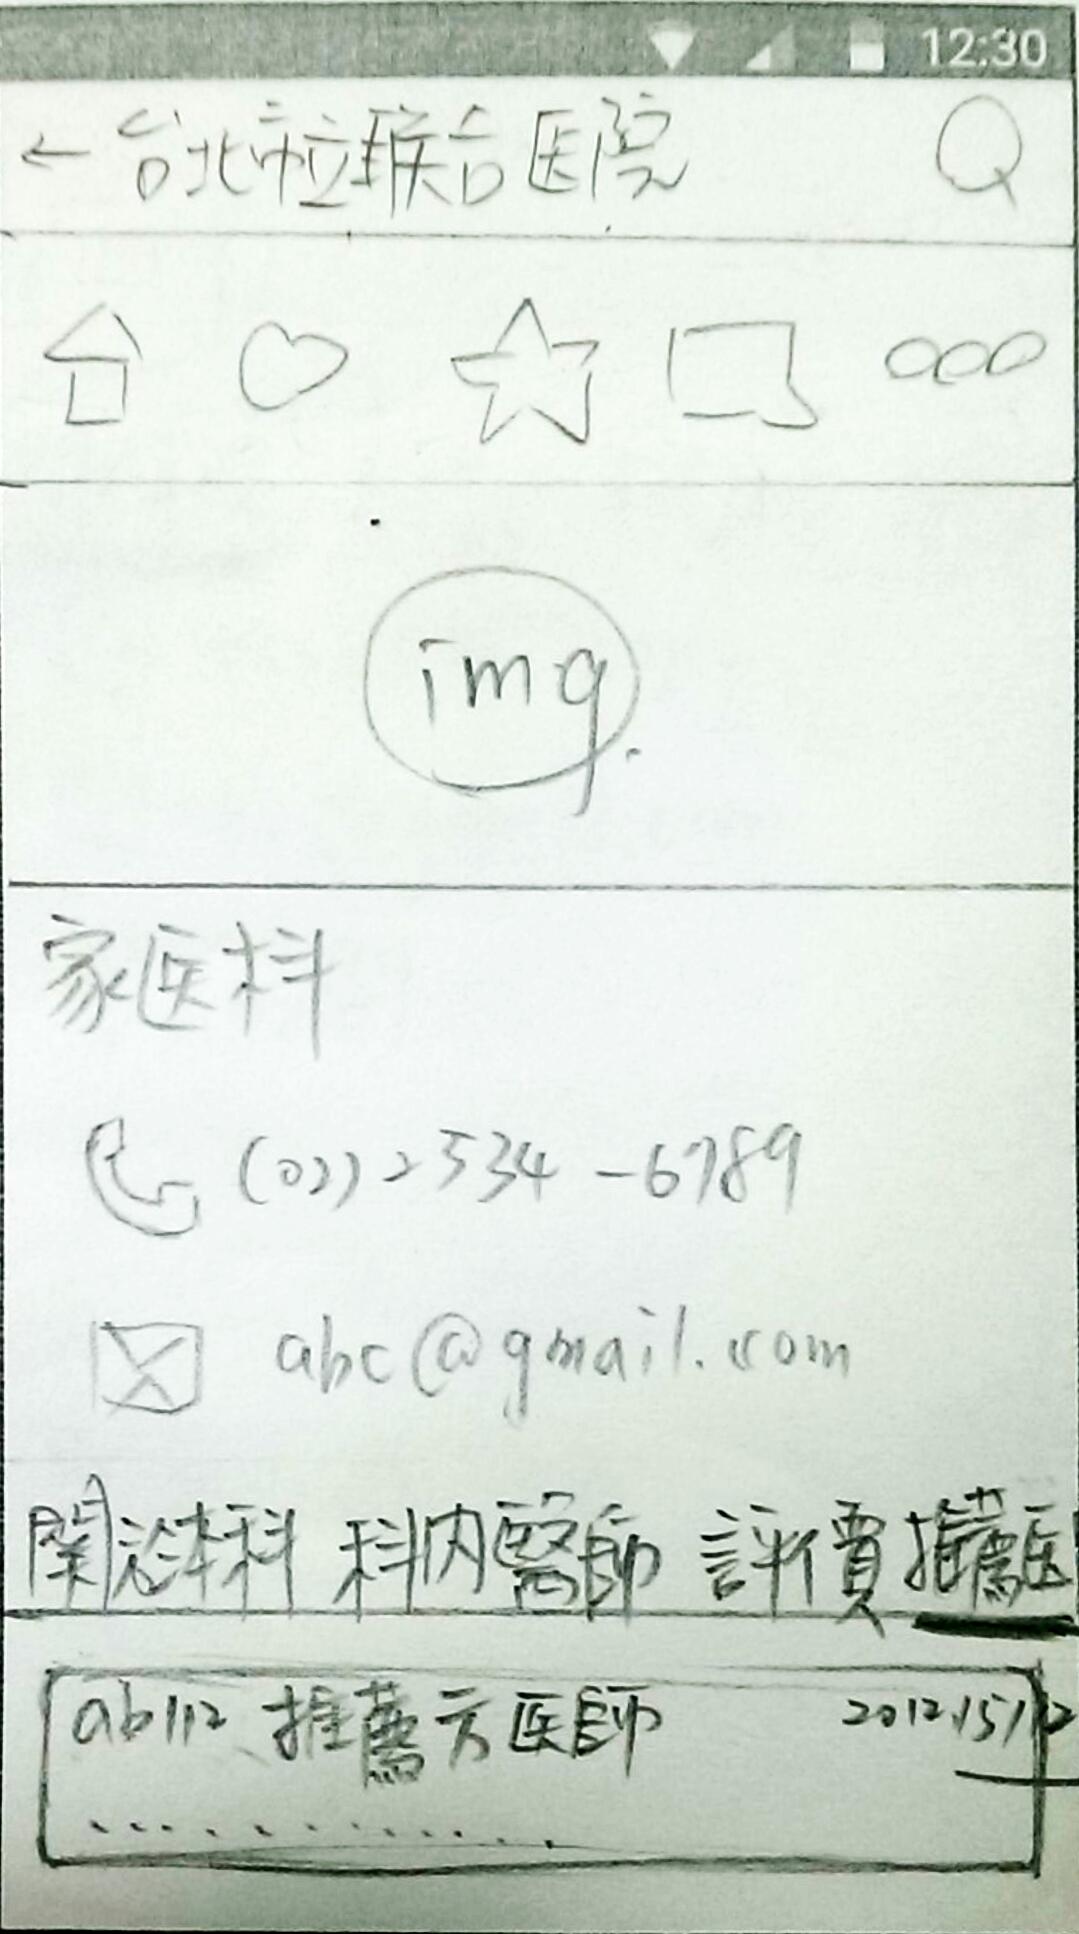 12:30
←台北市立联合医院
img.
家医科
(02)2534-6789
abc@gmail.com
関於本科 科内醫師 評價 推薦医
ab112 推薦方医師 2012/5/12
.............